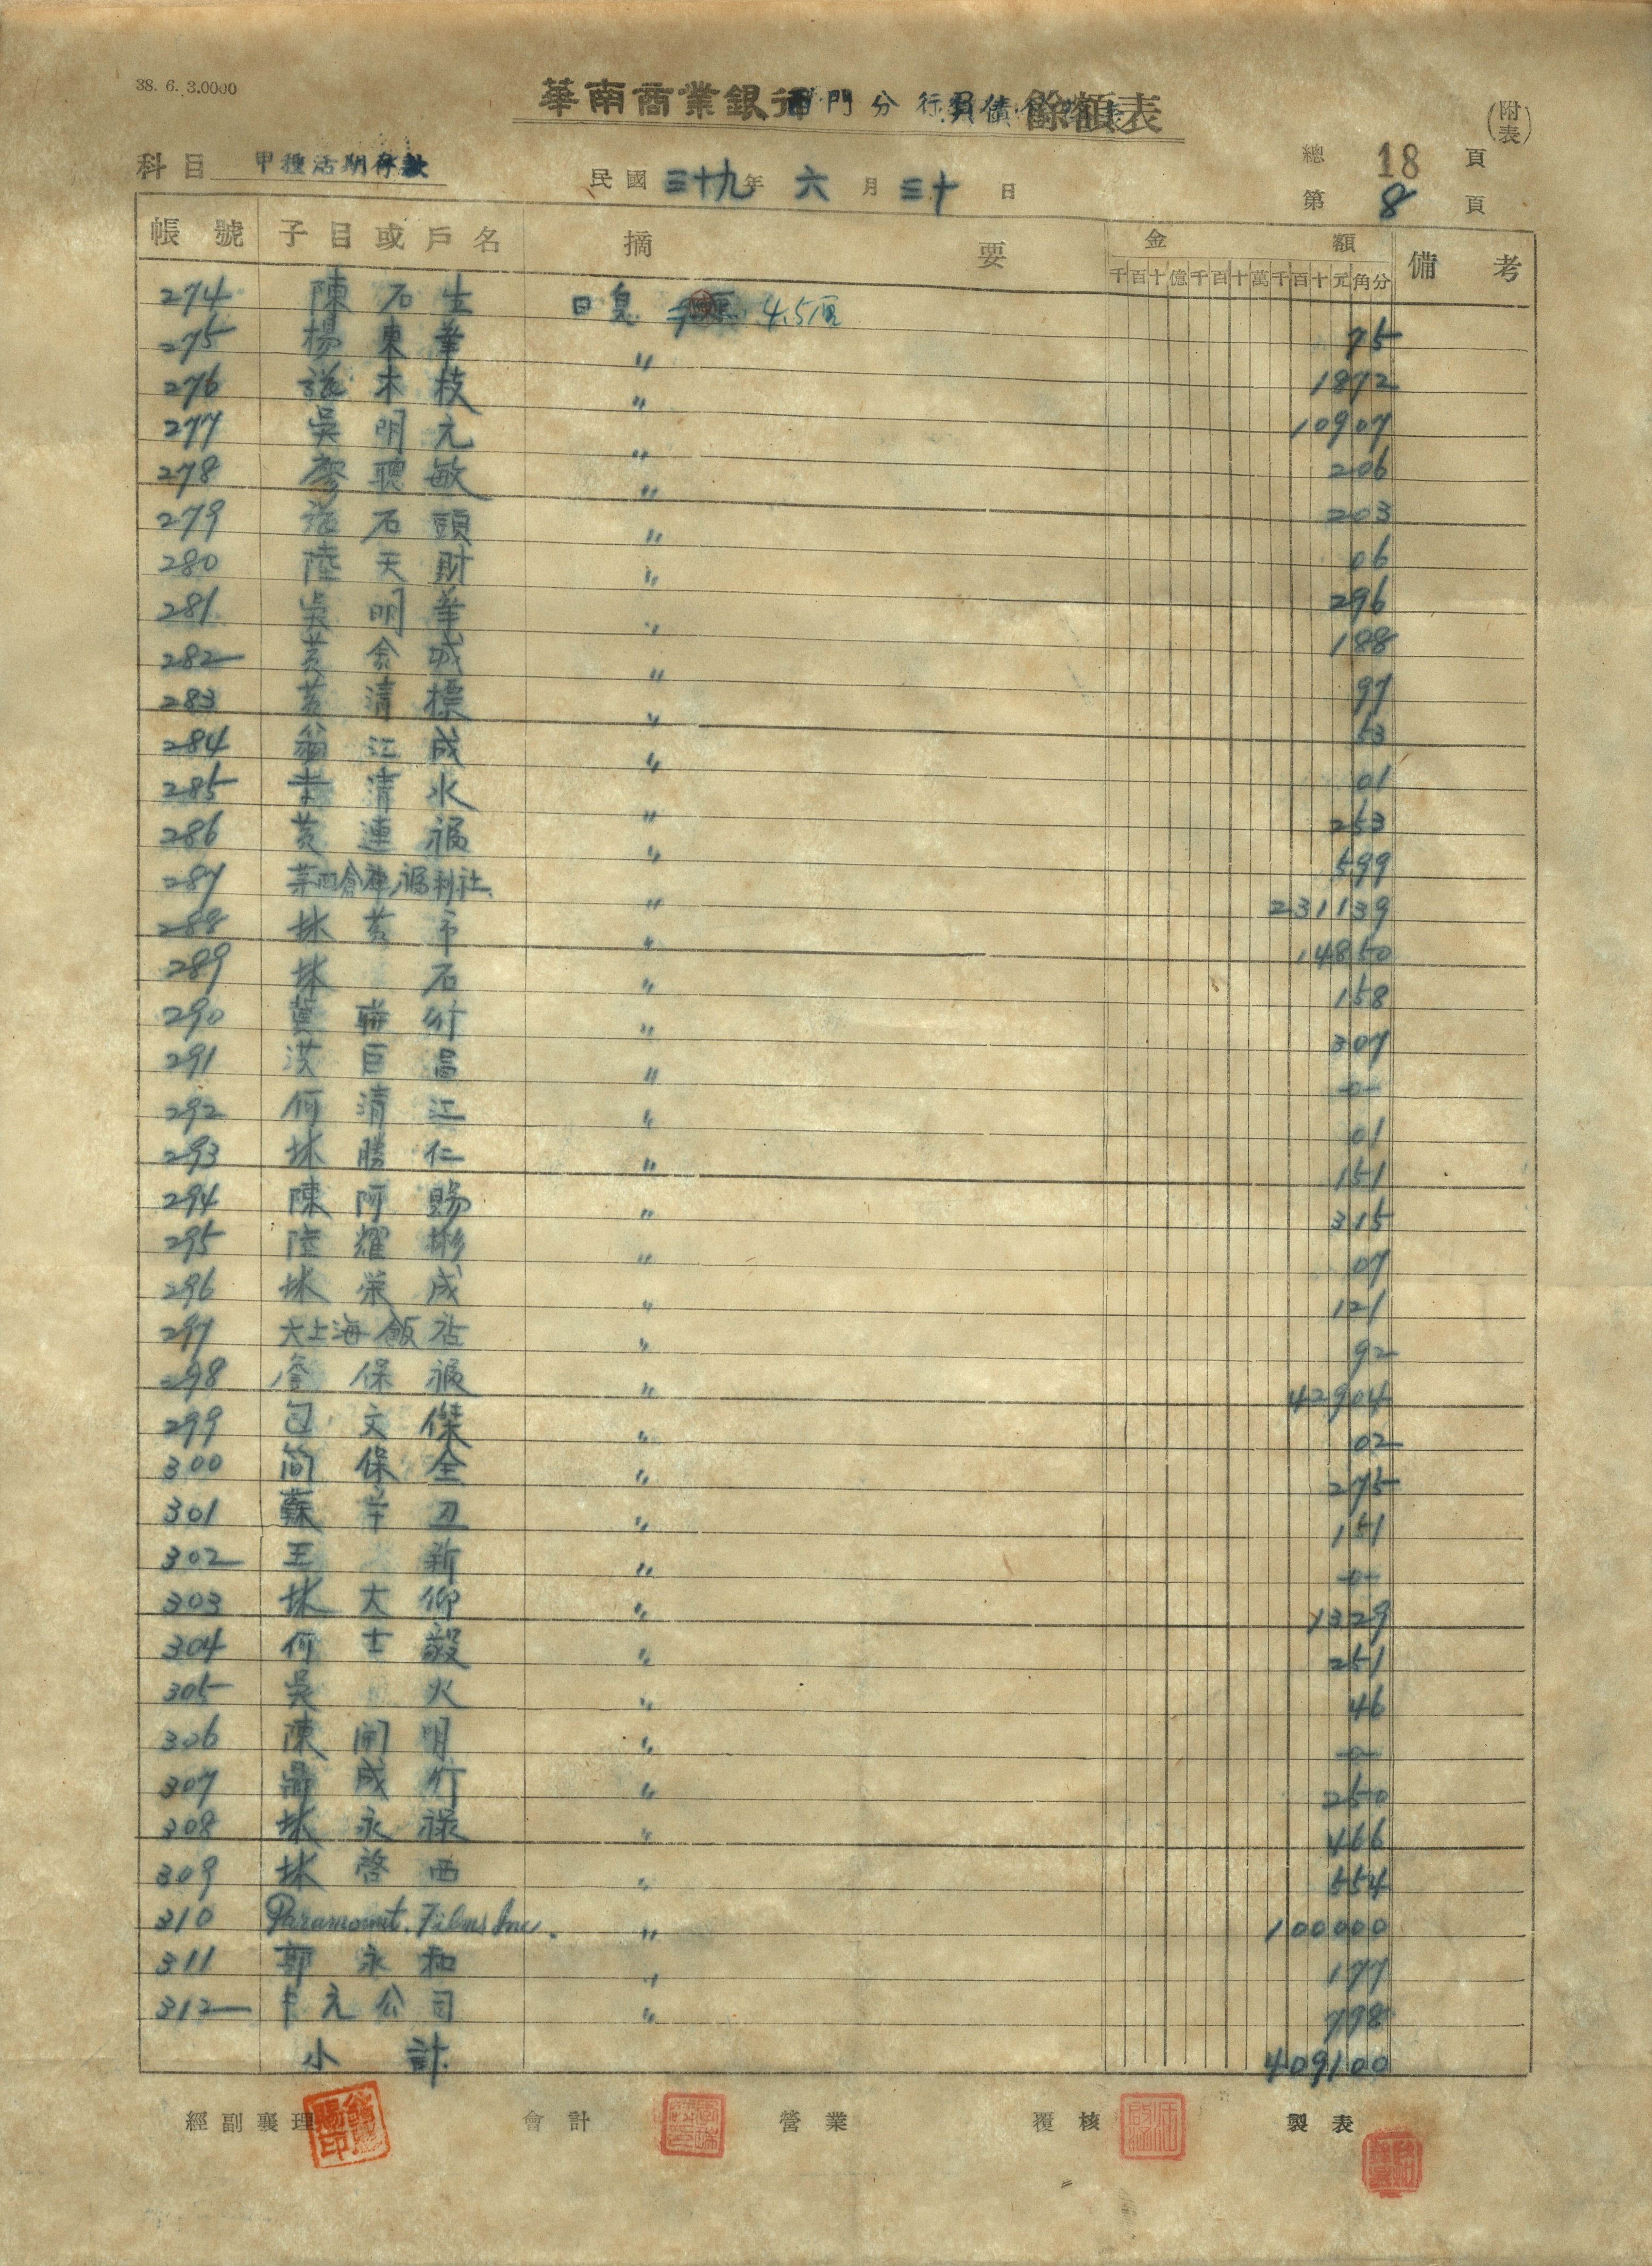 38. 6. 3.0000
華南商業銀行西門分行負債餘額表
(附表)
科目 甲種活期存款
民國 三十九年 六月 三十日
總 18 頁
第 8 頁
帳號 子目或戶名 摘要 金額 備考
千百十億千百十萬千百十元角分
274 陳石生 日息 4.5厘 75
275 楊東華 〃 1872
276 木枝 〃 10907
277 吳明元 〃 206
278 廖聰敏 〃 203
279 石頭 〃 06
280 陸天財 〃 296
281 吳明華 〃 188
282 黃城 〃 97
283 黃清標 〃 53
284 翁江成 〃 01
285 清水 〃 253
286 黃連福 〃 599
287 福利社 〃 231139
288 林黃市 〃 14850
289 林石 〃 158
290 葉聯竹 〃 307
291 洪巨昌 〃 -0-
292 何清江 〃 01
293 林勝仁 〃 151
294 陳阿賜 〃 315
295 陸耀彬 〃 07
296 林榮成 〃 121
297 大上海飯店 〃 92
298 詹保福 〃 42904
299 包文傑 〃 02
300 簡保全 〃 275
301 蘇辛丑 〃 151
302 王新 〃 -0-
303 林大仰 〃 1329
304 何士毅 〃 251
305 吳火 〃 46
306 陳開明 〃 -0-
307 成行 〃 250
308 林永祿 〃 466
309 林啓西 〃 554
310 Paramount Films Inc. 〃 100000
311 郭永和 〃 177
312 元公司 〃 798
小計 409100
經副襄理 會計 營業 覆核 製表